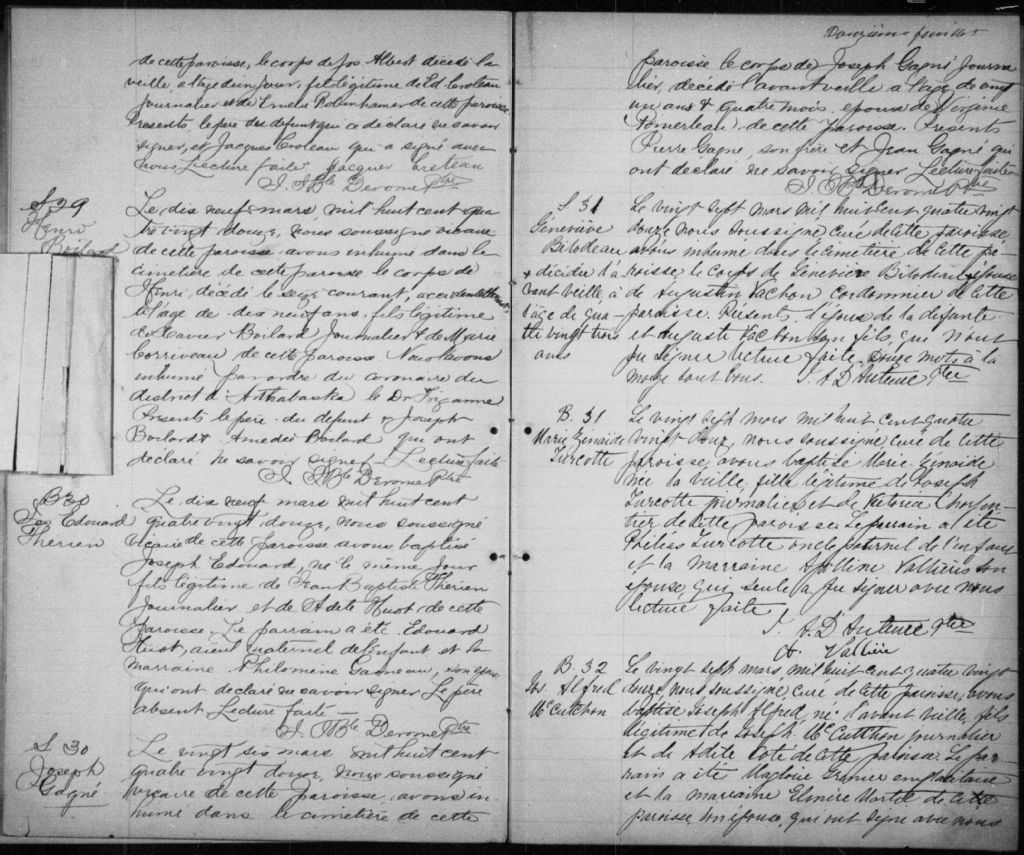 de cette paroisse, le corps de Jos. Albert décédé la
veille à l'age d'un jour, fils légitime de Ed. Croteau
Journalier et de Emelie de cette paroisse
Présents, le père du défunt qui a déclaré ne savoir
signer, et Jacques Croteau qui a signé avec
nous Lecture faite Jacques Croteau
J. Bte Derome Ptre
S 29
Henri
Boilard
Le dix neuf mars, mil huit cent qua
tre vingt douze, nous soussigné vicaire
de cette paroisse avons inhumé dans le
cimetière de cette paroisse le corps de
Henri, décédé le seize courant, accidentellement,
à l'age de dix neuf ans, fils légitime
de Xavier Boilard Journalier & de Marie
Corriveau de cette paroisse Nous l'avons
inhumé par ordre du coronaire du
district d'Arthabaska le Dr
Présents le père du défunt & Joseph
Boilard & Amedé Boilard qui ont
déclaré ne savoir signer - Lecture faite
J. Bte Derome Ptre
B 30
Jos Edouard
Therien
Le dix neuf mars mil huit cent
quatre vingt douze, nous soussigné
vicaire de cette paroisse avons baptisé
Joseph Edouard, né le même jour
fils légitime de Jean Baptiste Therien
Journalier et de Adele Huot de cette
paroisse. Le parrain a été Edouard
Huot, aïeul maternel de l'enfant et la
marraine Philomène Garneau, son épouse
qui ont declaré ne savoir signer Le père
absent Lecture faite
J. Bte Derome Ptre
S 30
Joseph
Gagné
Le vingt six mars mil huit cent
quatre vingt douze, nous soussigné
vicaire de cette paroisse, avons in
humé dans le cimetière de cette
Douzième feuillet
paroisse le corps de Joseph Gagné Journa
lier, décédé l'avant veille à l'age de
un ans & quatre mois, epoux de Virginie
Pomerleau de cette paroisse. Présents
Pierre Gagne, son frère et Jean Gagné qui
ont declaré ne savoir signer Lecture faite
J. Bte Derome Ptre
S. 31
Geneviève
Bilodeau
+ décédée l'a
vant veille, à
l'âge de qua-
tre vingt trois
ans
Le vingt sept mars mil huit cent quatre vingt
douze nous soussigné curé de cette paroisse
avons inhumé dans le cimetière de cette pa-
roisse le corps de Genevieve Bilodeau + epouse
de Augustin Vachon cordonnier de cette
paroisse. Présents, l'époux de la défunte
et Auguste Vachon son fils, qui n'ont
pu signer lecture faite. Douze mots à la
marge sont bons. J. A. D'Auteuil Ptre
B. 31
Marie Zénaïde
Turcotte
Le vingt sept mars mil huit cent quatre
vingt douze, nous soussigné curé de cette
paroisse, avons baptisé Marie Zénaïde
née la veille, fille légitime de Joseph
Turcotte journalier et de Victoria Charpen-
tier de cette paroisse. Le parrain a été
Philéas Turcotte oncle paternel de l'enfant
et la marraine Vallières son
épouse, qui seule a pu signer avec nous
lecture faite
J. A. D'Auteuil Ptre
A. Vallière
B. 32
Jos. Alfred
McCutchon
Le vingt sept mars, mil huit cent quatre vingt
douze, nous soussigné, curé de cette paroisse, avons
baptisé Joseph Alfred, né l'avant veille, fils
légitime de Joseph McCutchon journalier
et de Adèle Coté de cette paroisse. Le par
rain a été Magloire
et la marraine Elmire Martel de cette
paroisse, son épouse, qui ont signé avec nous